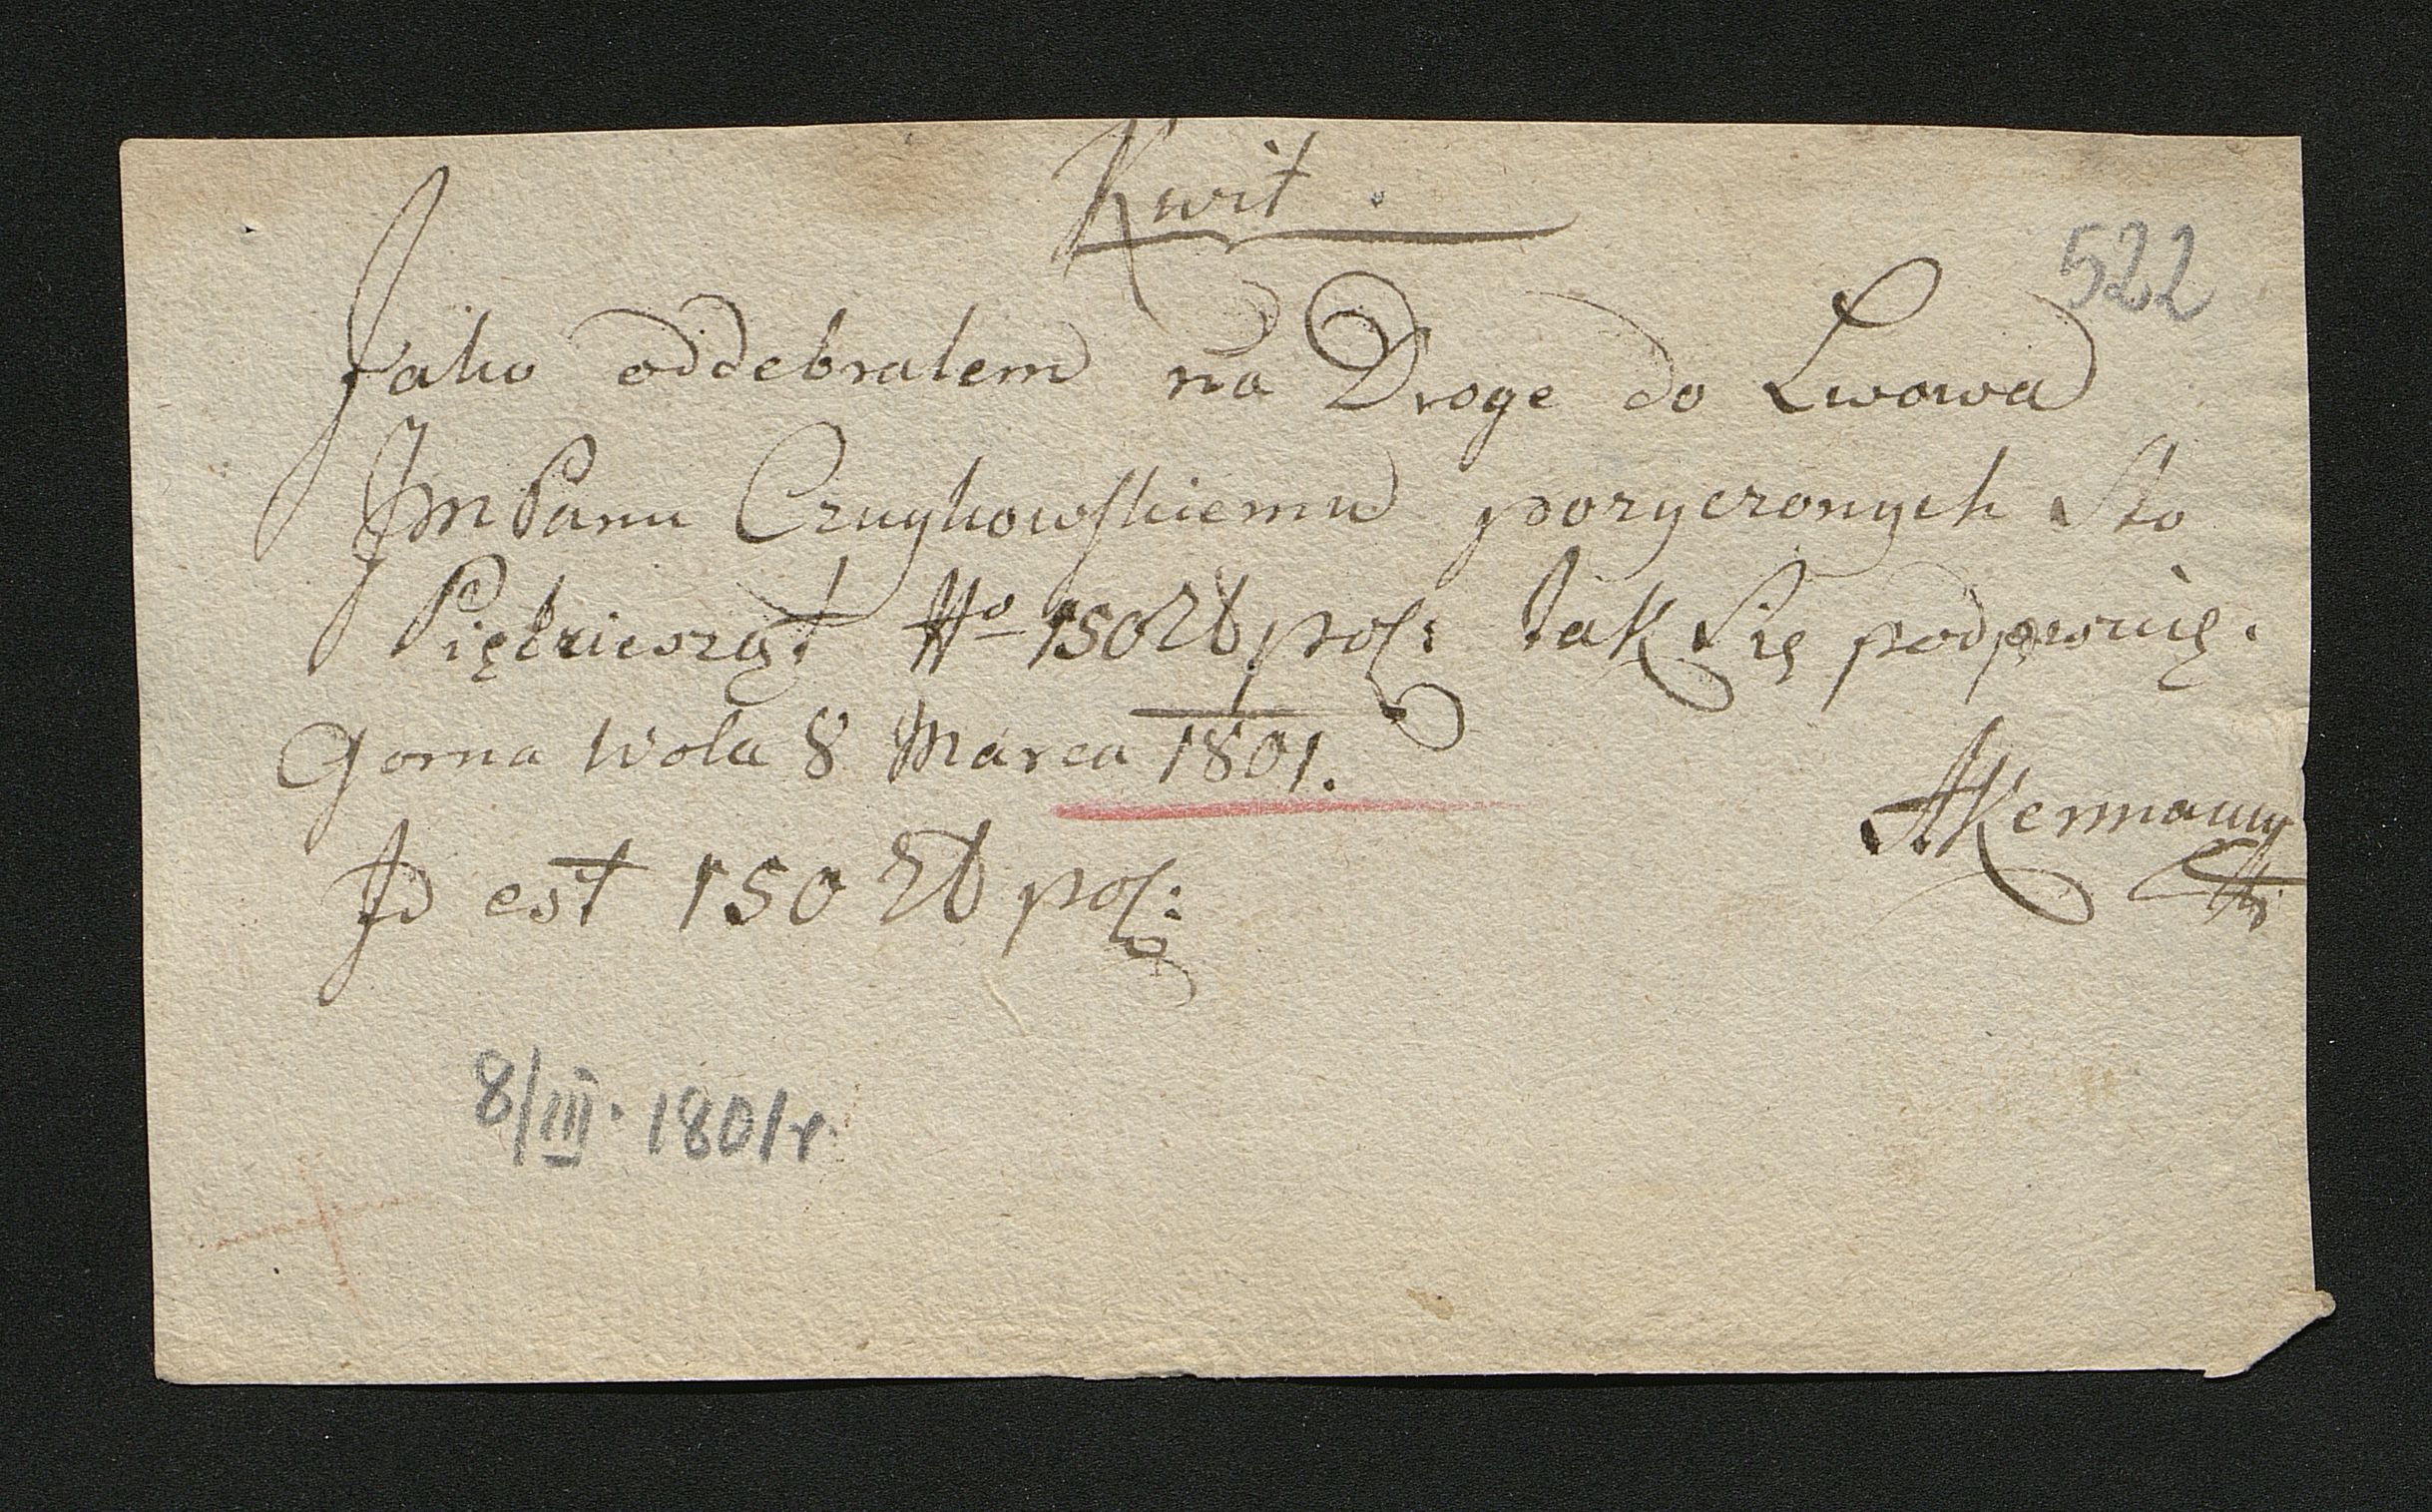 Kwit.
522
Jako oddebralem na Droge do Lwowa
Jm Panu Czuykowskiemu pozyczonych Sto
Piędziesząt No 150 Zł pol: Jak Się podpisuię.
Gorna Wola 8 Marca 1801.
AKermann
Id est 150 Zł pol:
8/III. 1801 r.